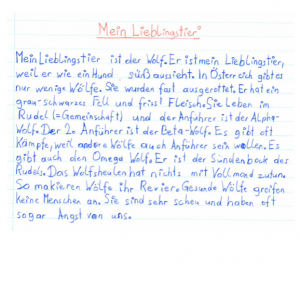 Mein Lieblingstier
Mein Lieblingstier ist der Wolf. Er ist mein Lieblingstier,
weil er wie ein Hund süß aussieht. In Österreich gibt es
nur wenige Wölfe. Sie wurden fast ausgerottet. Er hat ein
grau-schwarzes Fell und frisst Fleisch. Sie leben im
Rudel (=Gemeinschaft) und der Anführer ist der Alpha-
Wolf. Der 2. Anführer ist der Beta-Wolf. Es gibt oft
Kämpfe, weil andere Wölfe auch Anführer sein wollen. Es
gibt auch den Omega Wolf. Er ist der Sündenbock des
Rudels. Das Wolfsheulen hat nichts mit Vollmond zutun.
So makieren Wölfe ihr Revier. Gesunde Wölfe greifen
keine Menschen an. Sie sind sehr scheu und haben oft
sogar Angst von uns.